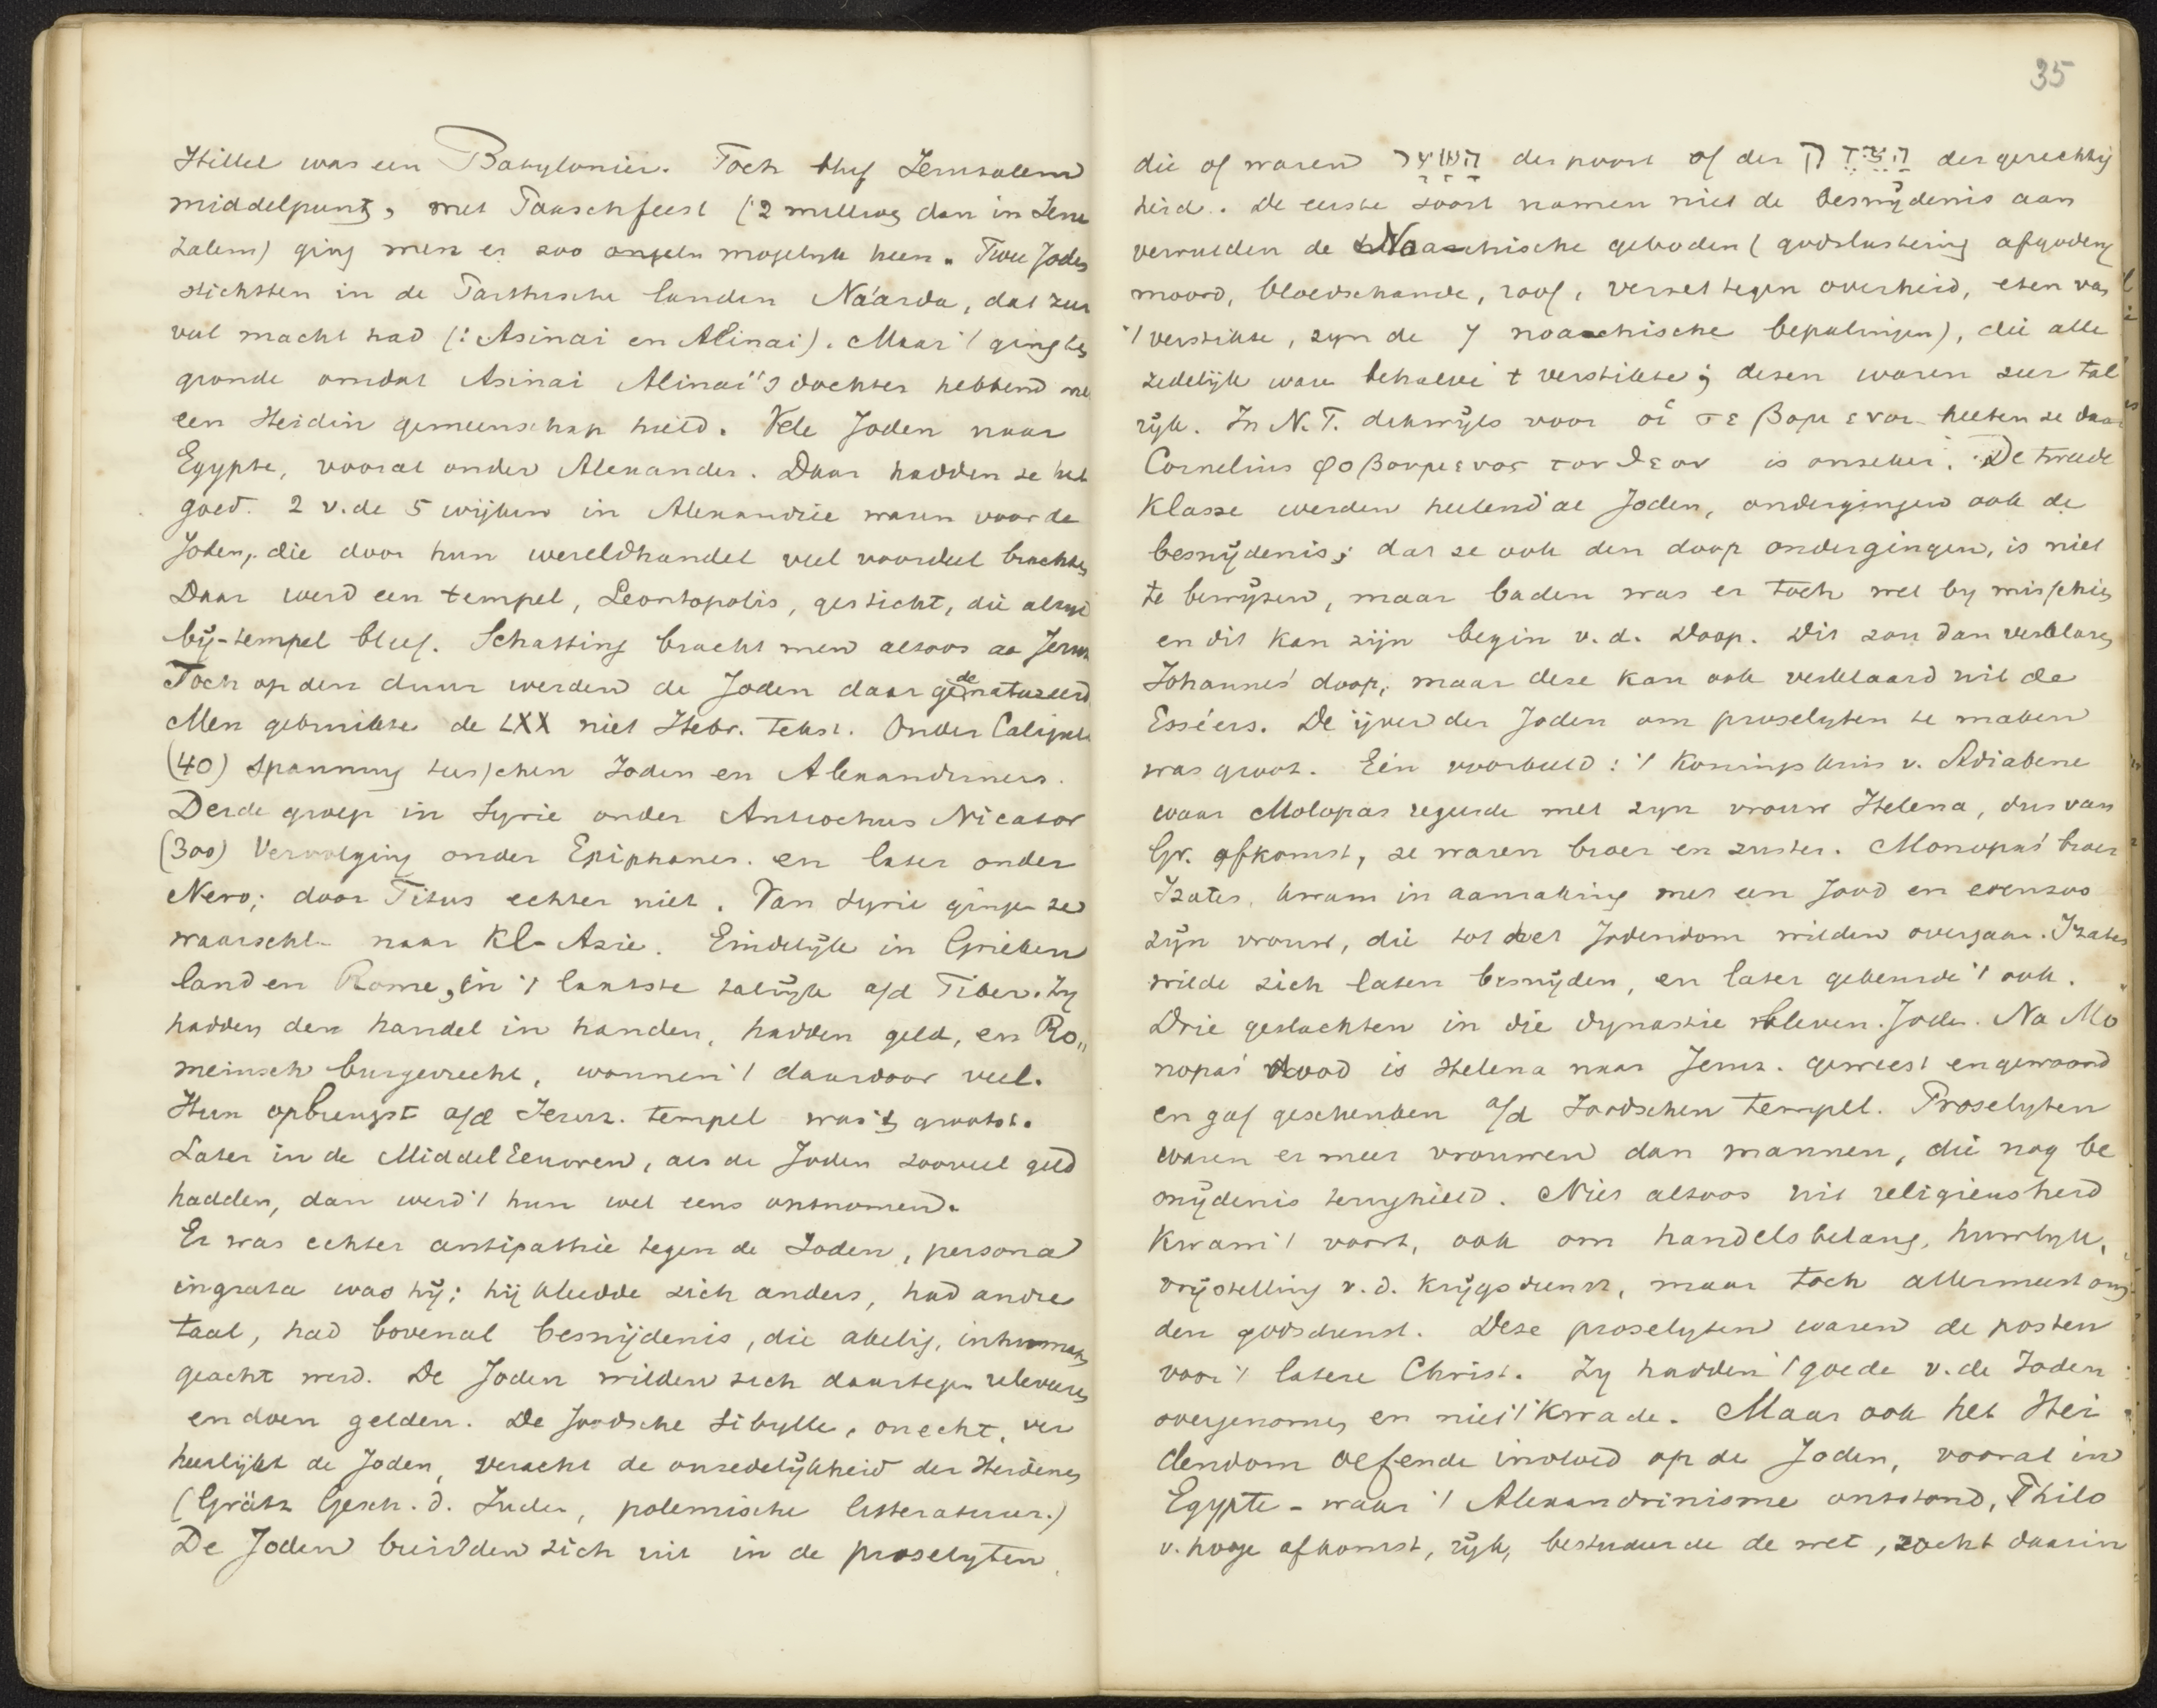 Hillel was een Babylonier. Toch bleef Jeruzalem
middelpunt, met Paaschfeest (2 millioen dan in Jeru
zalem) ging men er zoo mogelyk heen. Twee Joden
stichtten in de Parthische landen Náarda, dat zeer
veel macht had (: Asinai en Alinai). Maar 't ging te
gronde omdat Asinai Alinai's dochter hebbend met
een Heidin gemeenschap hield. Vele Joden naar
Egypte, vooral onder Alexander. Daar hadden ze het
goed. 2 v. de 5 wijken in Alexandrie waren voor de
Joden, die door hun wereldhandel veel voordeel brachten
Daar werd een tempel, Leontopolis, gesticht, die altijd
bij-tempel bleef. Schatting bracht men altoos aa Jeruz
Toch op den duur werden de Joden daar gedenatureerd
Men gebruikte de LXX niet Hebr. tekst. Onder Caligula
(40) spanning tusschen Joden en Alexandriners.
Derde groep in Syrie onder Antiochus Nicator
(300) Vervolging onder Epiphanes. en later onder
Nero; door Titus echter niet. Van Syrie gingen ze
waarschl. naar Kl-Azie. Eindelijk in Grieken
land en Rome, in 't laatste talrijk a/d Tiber. Zy
hadden den handel in handen, hadden geld, en Ro„
meinsch burgerrecht, wonnen 't daardoor veel.
Hun opbrengst a/d Jeruz. tempel was 't grootst.
Later in de MiddelEeuwen, als de Joden zooveel geld
hadden, dan werd 't hun wel eens ontnomen.
Er was echter antipathie tegen de Joden, persona
ingrata was hij; hij kleedde zich anders, had andre
taal, had bovenal besnijdenis, die akelig, inhumaan
geacht werd. De Joden wilden zich daartegen releveeren
en doen gelden. De Joodsche Sibylle, onecht, ver
heerlijkt de Joden, veracht de onzedelijkheid der Heidenen
(Grätz Gesch. d. Juden, polemische litteratuur.)
De Joden breidden zich uit in de proselyten
35
die of waren השער der poort of der הצדק der gerechtig
heid. De eerste soort namen niet de besnijdenis aan
vervulden de Noachische geboden (godslastering afgoderij
moord, bloedschande, roof, verzet tegen overheid, eten van
't verstikte, zyn de 7 noachische bepalingen), die alle
zedelijk ware behalve 't verstikte; dezen waren zeer tal
rijk. In N.T. dikwijls voor οἱ σεβομενοι heeten ze daar
Cornelius φοβουμενος τον θεον is onzeker. De tweede
Klasse werden heelend al Joden, ondergingen ook de
besnijdenis; dat ze ook den doop ondergingen, is niet
te bewijzen, maar baden was er toch wel by misschien
en dit kan zijn begin v. d. Doop. Dit zou dan verklaren
Johannes' doop, maar deze kan ook verklaard uit de
Esséers. De ijver der Joden om proselyten te maken
was groot. Eén voorbeeld: 't Koningshuis v. Adiabene
waar Molopas regeerde met zyn vrouw Helena, dus van
Gr. afkomst, ze waren broer en zuster. Monopas' broer
Izates, kwam in aanraking met een Jood en evenzoo
zijn vrouw, die tot het Jodendom wilden overgaan. Izates
wilde zich laten besnijden, en later gebeurde 't ook.
Drie geslachten in die dynastie bleven Joden. Na Mo
nopas' dood is Helena naar Jeruz. geweest en gewoond
en gaf geschenken a/d Joodschen tempel. Proselyten
waren er meer vrouwen dan mannen, die nog be
snijdenis terughield. Niet altoos uit religieusheid
kwam 't voort, ook om handelsbelang, huwlyk,
vrijstelling v. d. krijgsdienst, maar toch allermeest om
den godsdienst. Deze proselyten waren de posten
voor 't latere Christ. Zy hadden 't goede v. de Joden
overgenomen en niet 't Kwade. Maar ook het Hei
dendom oefende invloed op de Joden, vooral in
Egypte - waar 't Alexandrinisme ontstond, Philo
v. hooge afkomst, rijk, bestudeerde de wet, zocht daarin